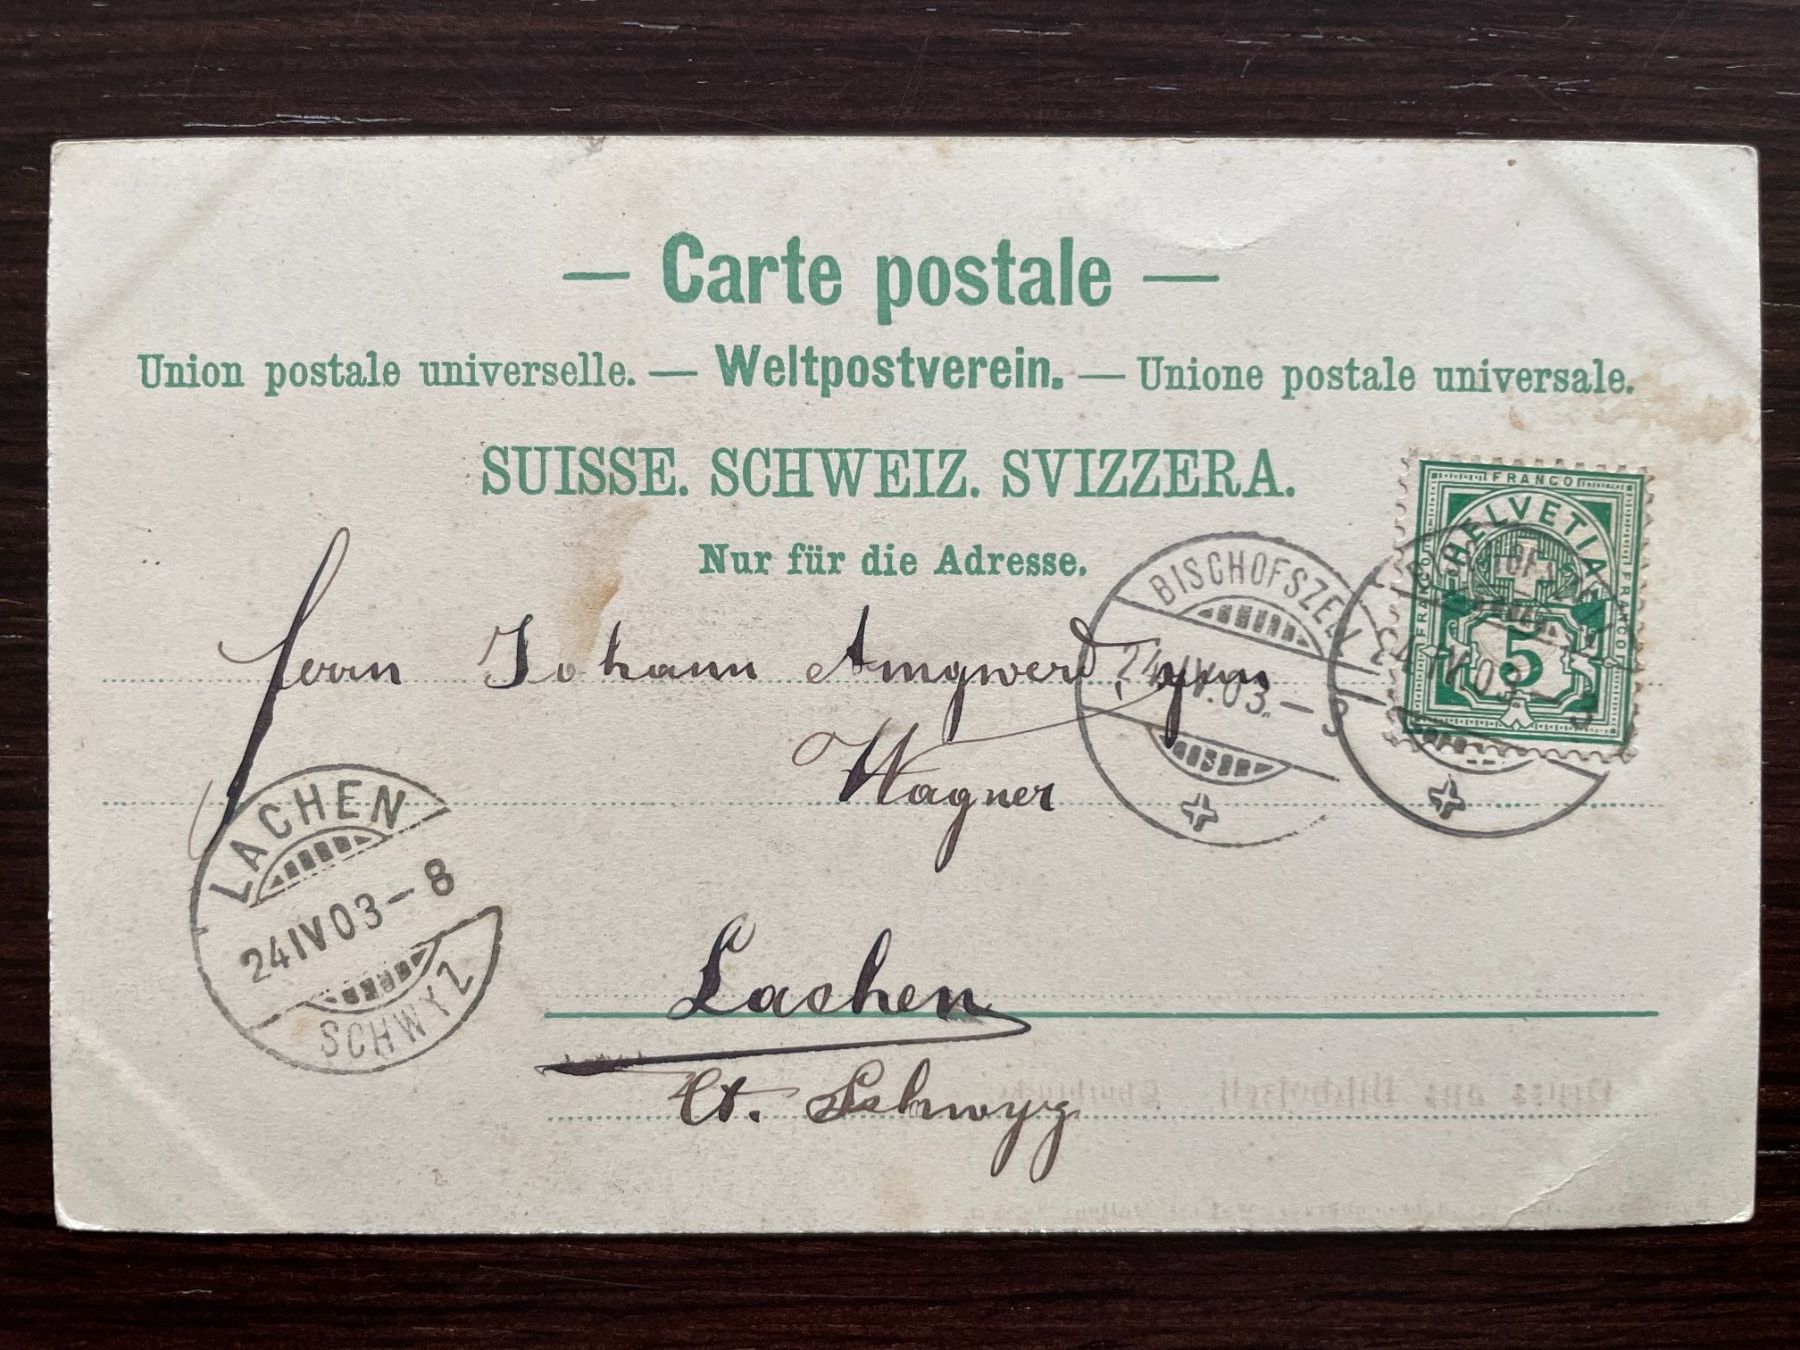 — Carte postale —
Union postale universelle. — Weltpostverein. — Unione postale universale.
SUISSE. SCHWEIZ. SVIZZERA.
Nur für die Adresse.
FRANCO
HELVETIA
FRANCO
FRANCO
5
BISCHOFSZELL
24.IV.03.–3
24.IV.03
Herrn Johann Amgwerd, jun
Wagner
LACHEN
24 IV 03–8
SCHWYZ
Lachen
Ct. Schwyz